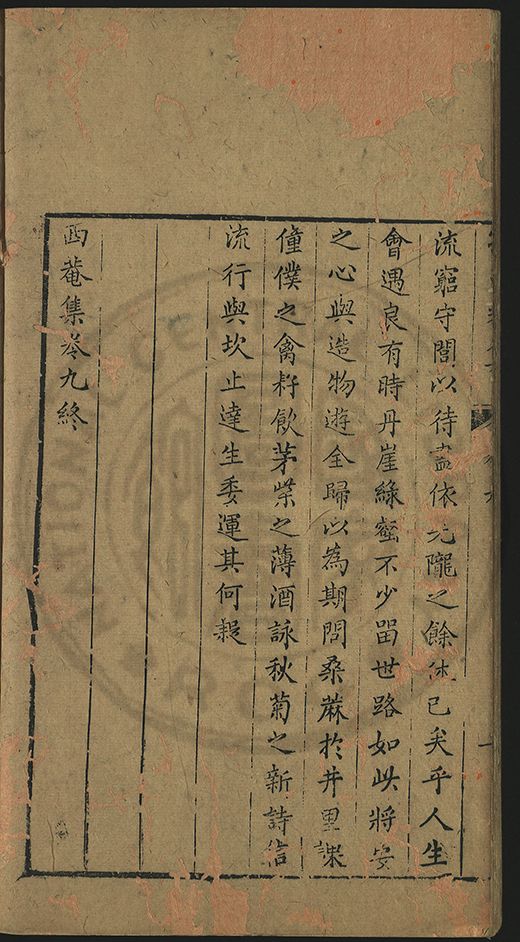 流窮守閭以待盡依先隴之餘休已矣乎人生
會遇良有時丹崖綠壑不少留世路如此將安
之心與造物遊全歸以為期問桑麻於井里課
僮僕之禽耔飲茅柴之薄酒詠秋菊之新詩信
流行與坎止達生委運其何疑
西菴集卷九終